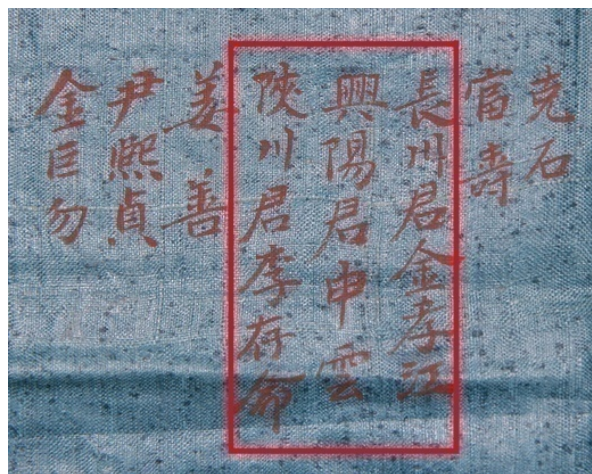 克石
富壽
長川君金孝江
興陽君申雲
陜川君李存命
姜善
尹熙貞
金巨勿